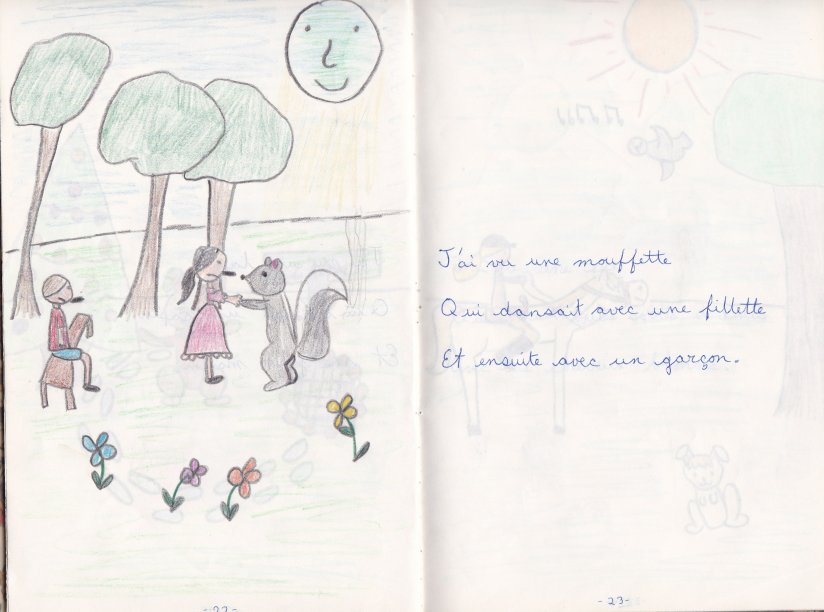 J'ai vu une mouffette
Qui dansait avec une fillette
Et ensuite avec un garçon.
- 23 -